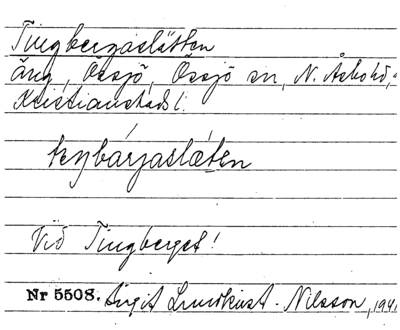 Tingbergaslätten
äng, Össjö, Össjö sn, N. Åsbo hd,
Kristianstads l.
teŋbárjaslæ̀ten
Vid Tingberget!
Nr 5508. Birgit Lundkvist-Nilsson, 1941